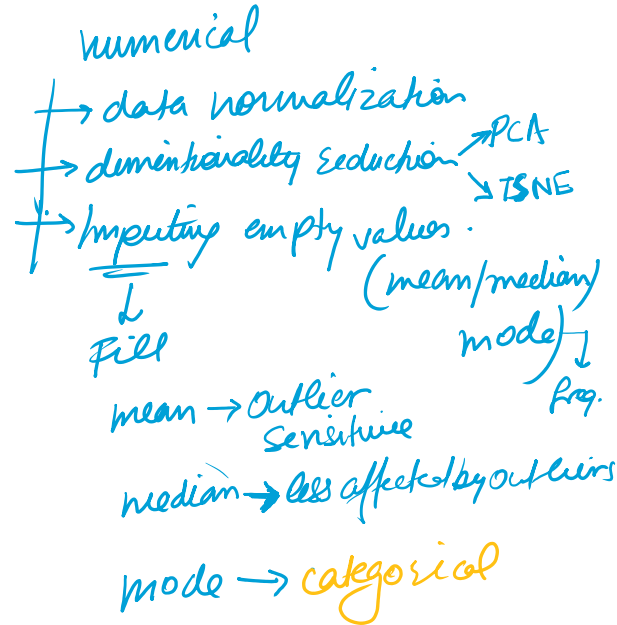 numerical
→ data normalization
→ dimentionality reduction → PCA
→ TSNE
→ Imputing empty values.
(mean/median/
mode) → freq.
↓
Fill
mean → outlier
sensitive
median → less affected by outliers
mode → categorical